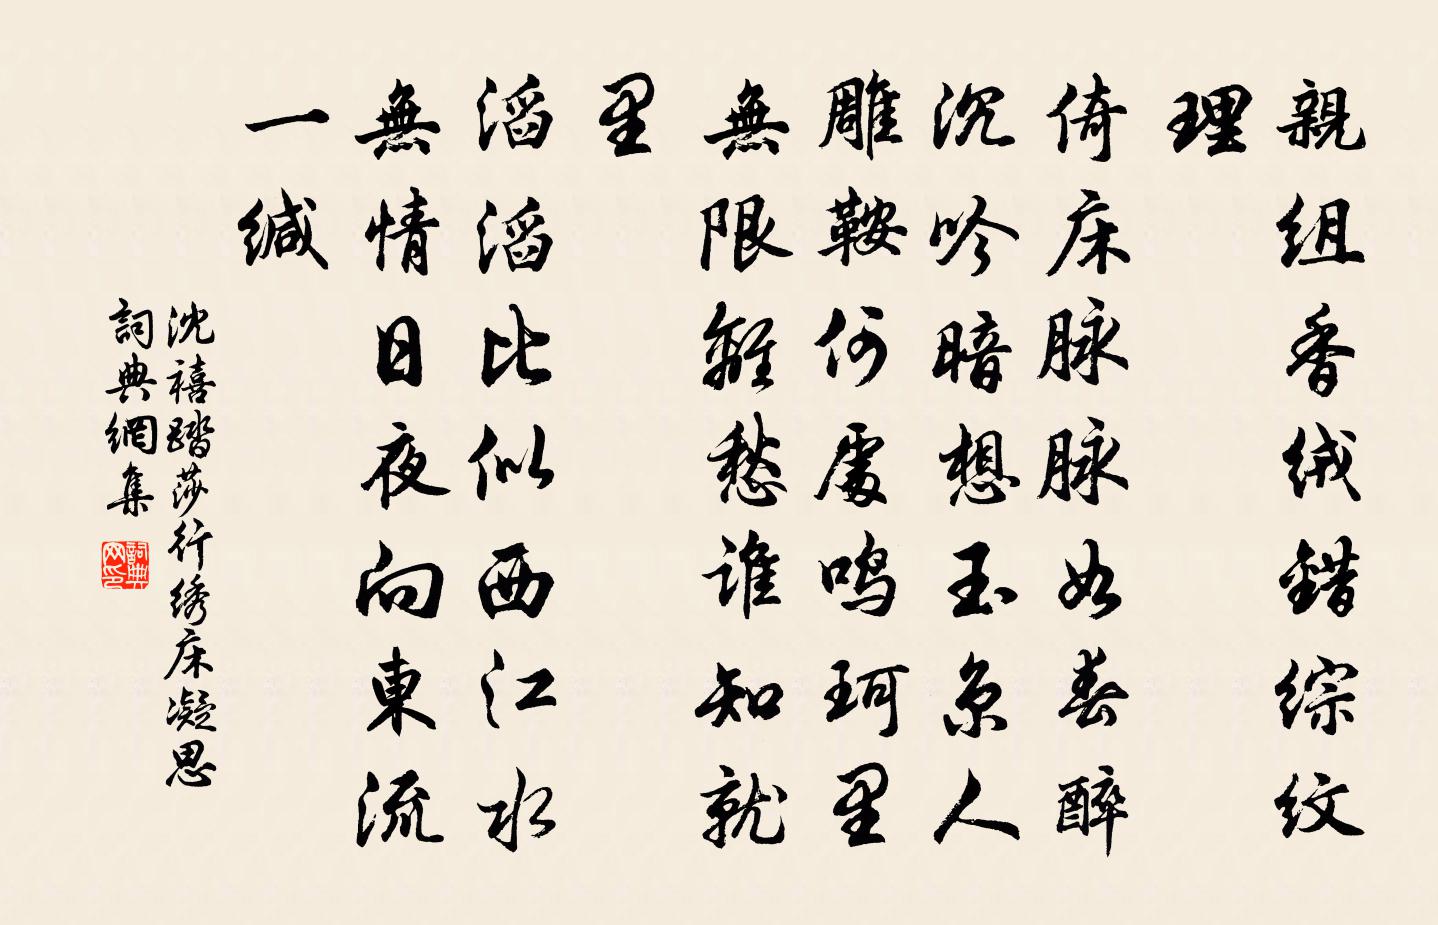 親組香绒錯综纹
理
倚床脉脉如春醉
沉吟暗想玉京人
雕鞍何處鸣珂里
無限離愁谁知就
里
滔滔比似西江水
無情日夜向東流
一缄
沈禧踏莎行绣床凝思
詞典網集
詞典网印